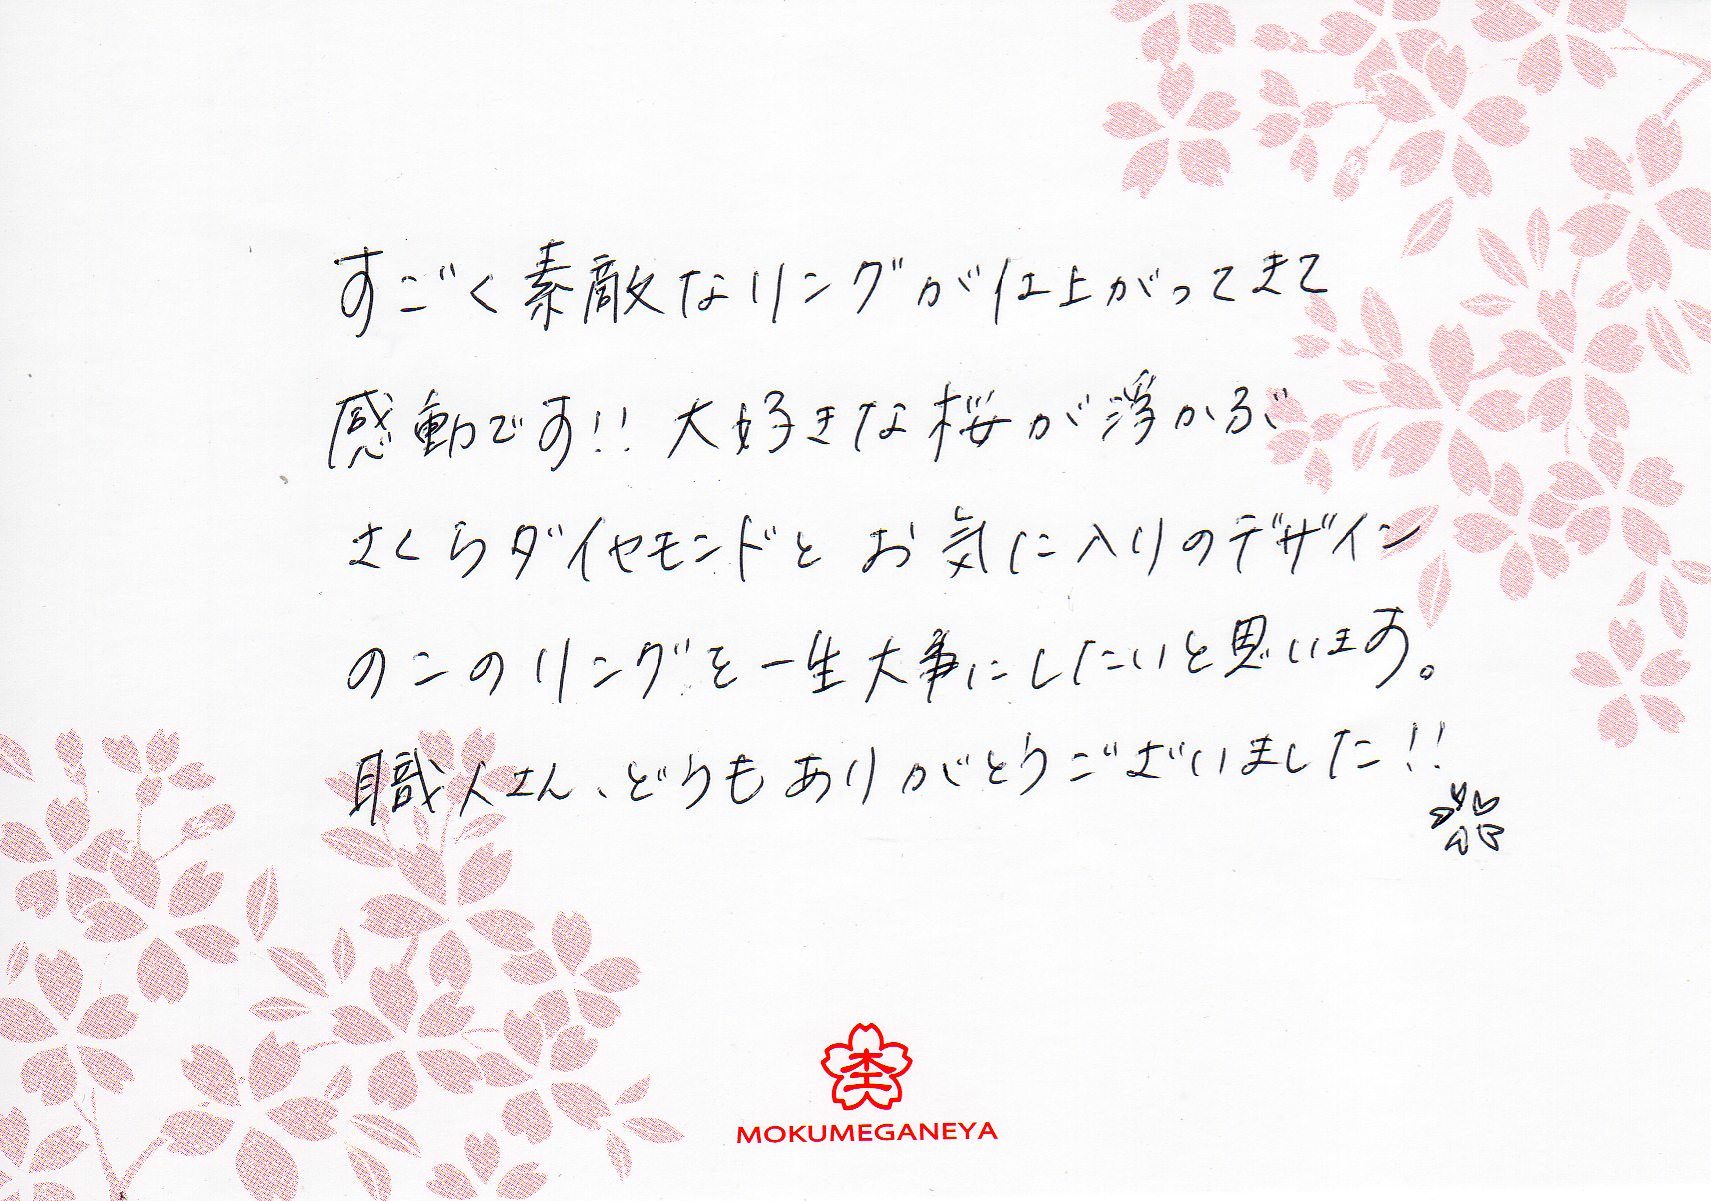 すごく素敵なリングが仕上がってきて
感動です!! 大好きな桜が浮かぶ
さくらダイヤモンドとお気に入りのデザイン
のこのリングを一生大事にしたいと思います。
職人さん、どうもありがとうございました!!
杢
MOKUMEGANEYA